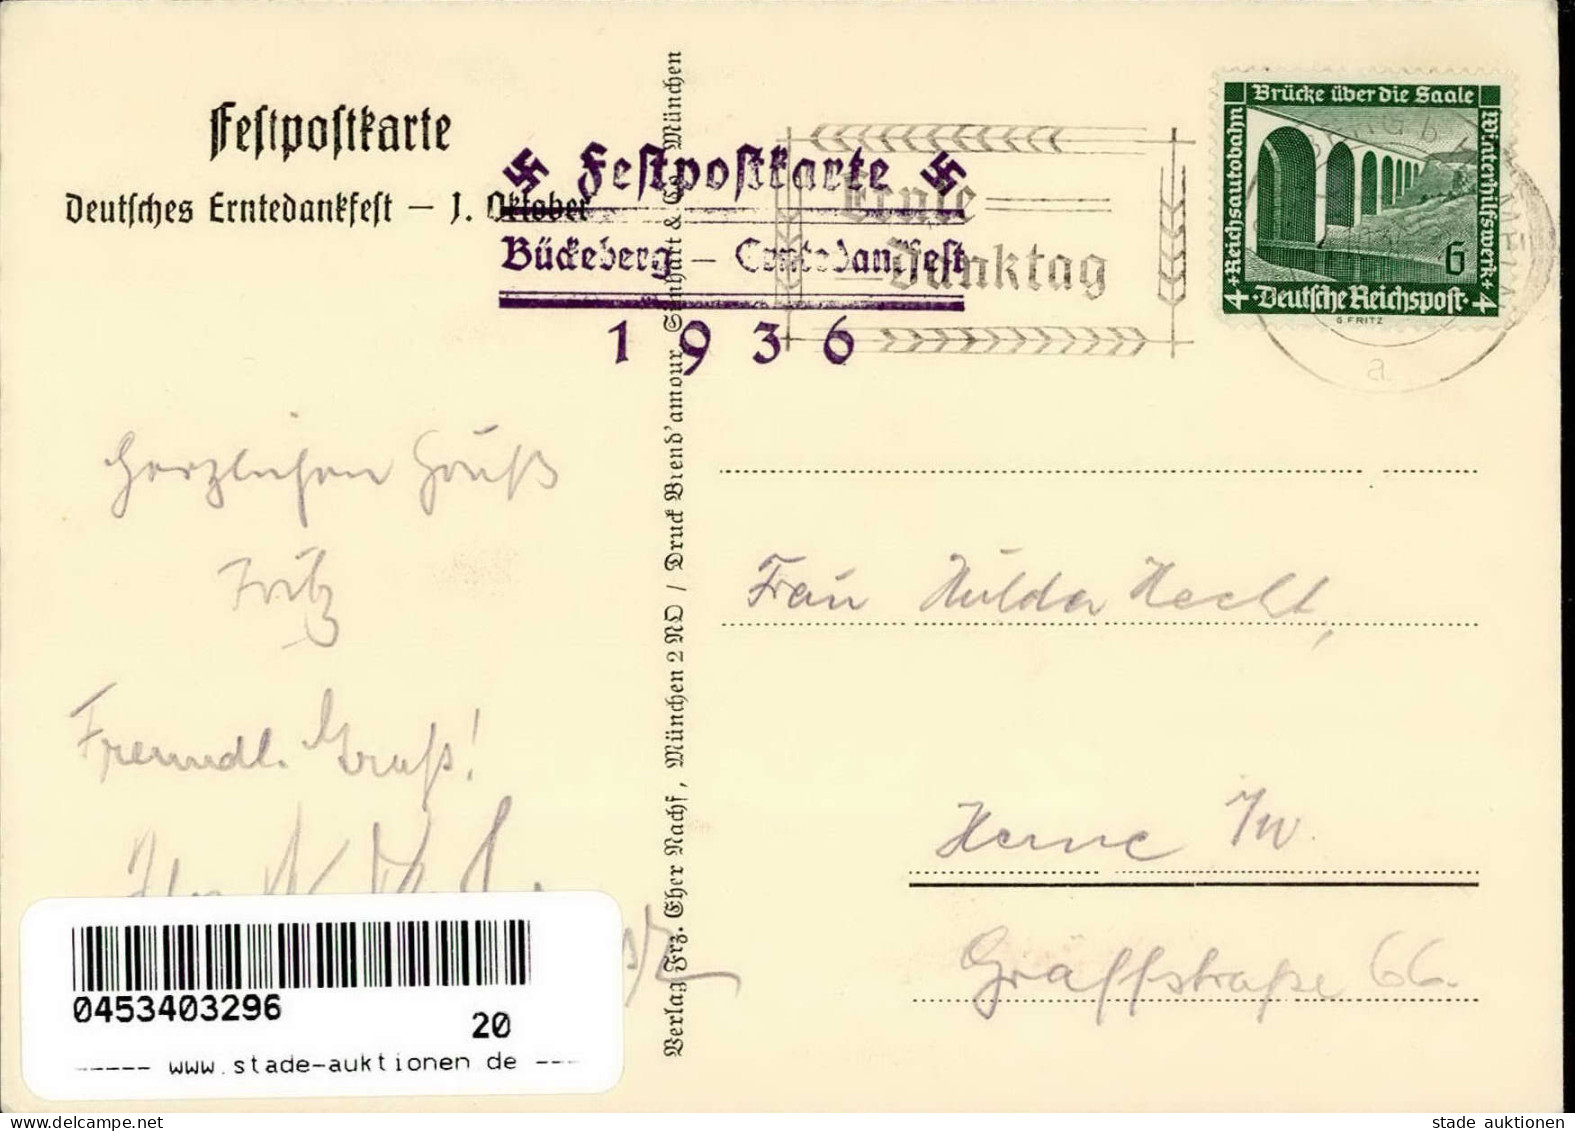 Festpostkarte
Deutsches Erntedankfest — 1. Oktober
Festpostkarte
Bückeberg – Erntedankfest
1936
Ernte
Danktag
Brücke über die Saale
4 + Reichsautobahn
Winterhilfswerk + 4
6
Deutsche Reichspost
G. FRITZ
a
Herzlichen Gruß
Fritz
Freundl. Gruß!
Verlag Frz. Eher Nachf., München 2 NO / Druck Brend'amour, Simhart & Co., München
Frau Hulda Hecht,
Herne i/W.
Gräffstraße 66.
0453403296
20
----- www.stade-auktionen.de ---
stade auktionen
stade auktionen